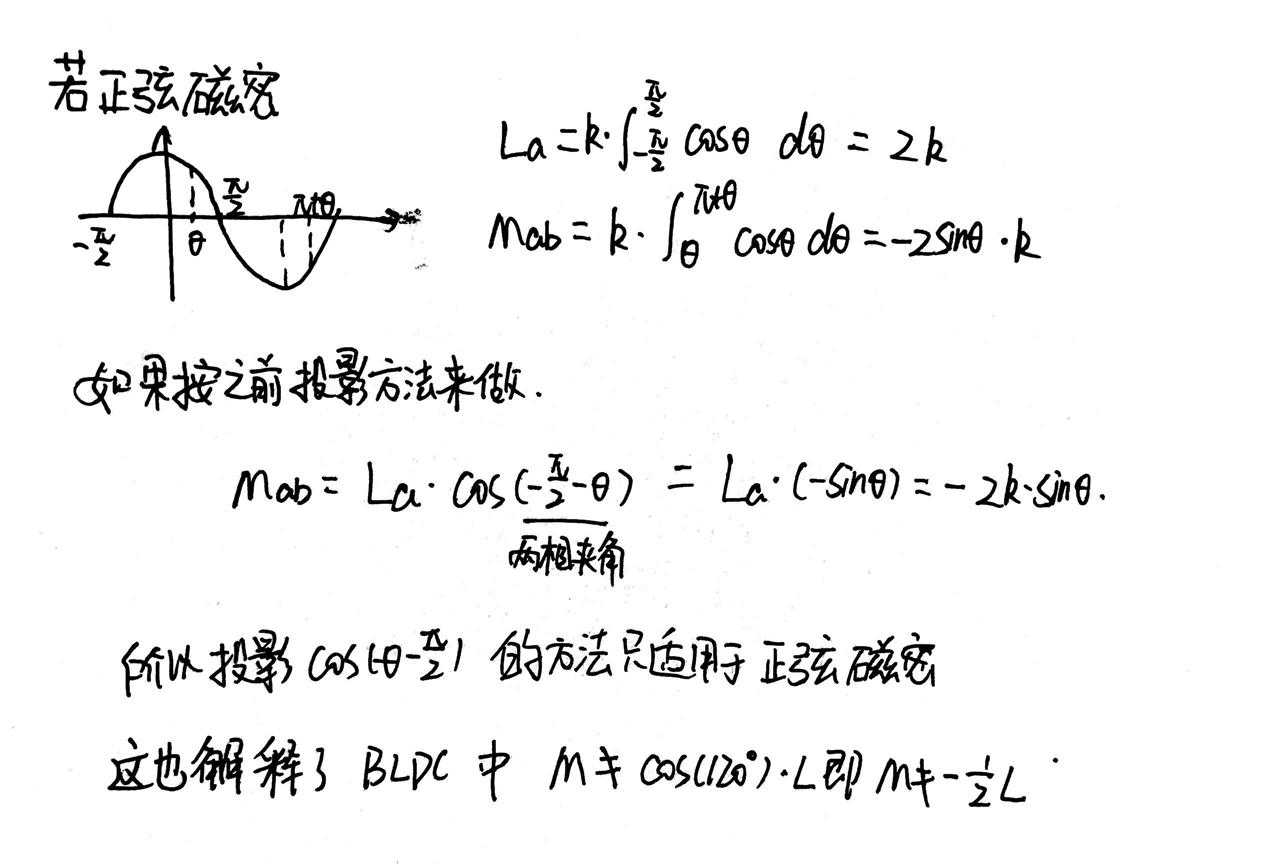 若正弦磁密
La = k·∫_{-π/2}^{π/2} cosθ dθ = 2k
-π/2 θ π/2 π+θ
Mab = k·∫_{θ}^{π+θ} cosθ dθ = -2sinθ·k
如果按之前投影方法来做.
Mab = La·cos(-π/2-θ) = La·(-sinθ) = -2k·sinθ.
两相夹角
所以投影 cos(-θ-π/2) 的方法只适用于正弦磁密
这也解释了 BLDC 中 M ≠ cos(120°)·L 即 M ≠ -1/2 L